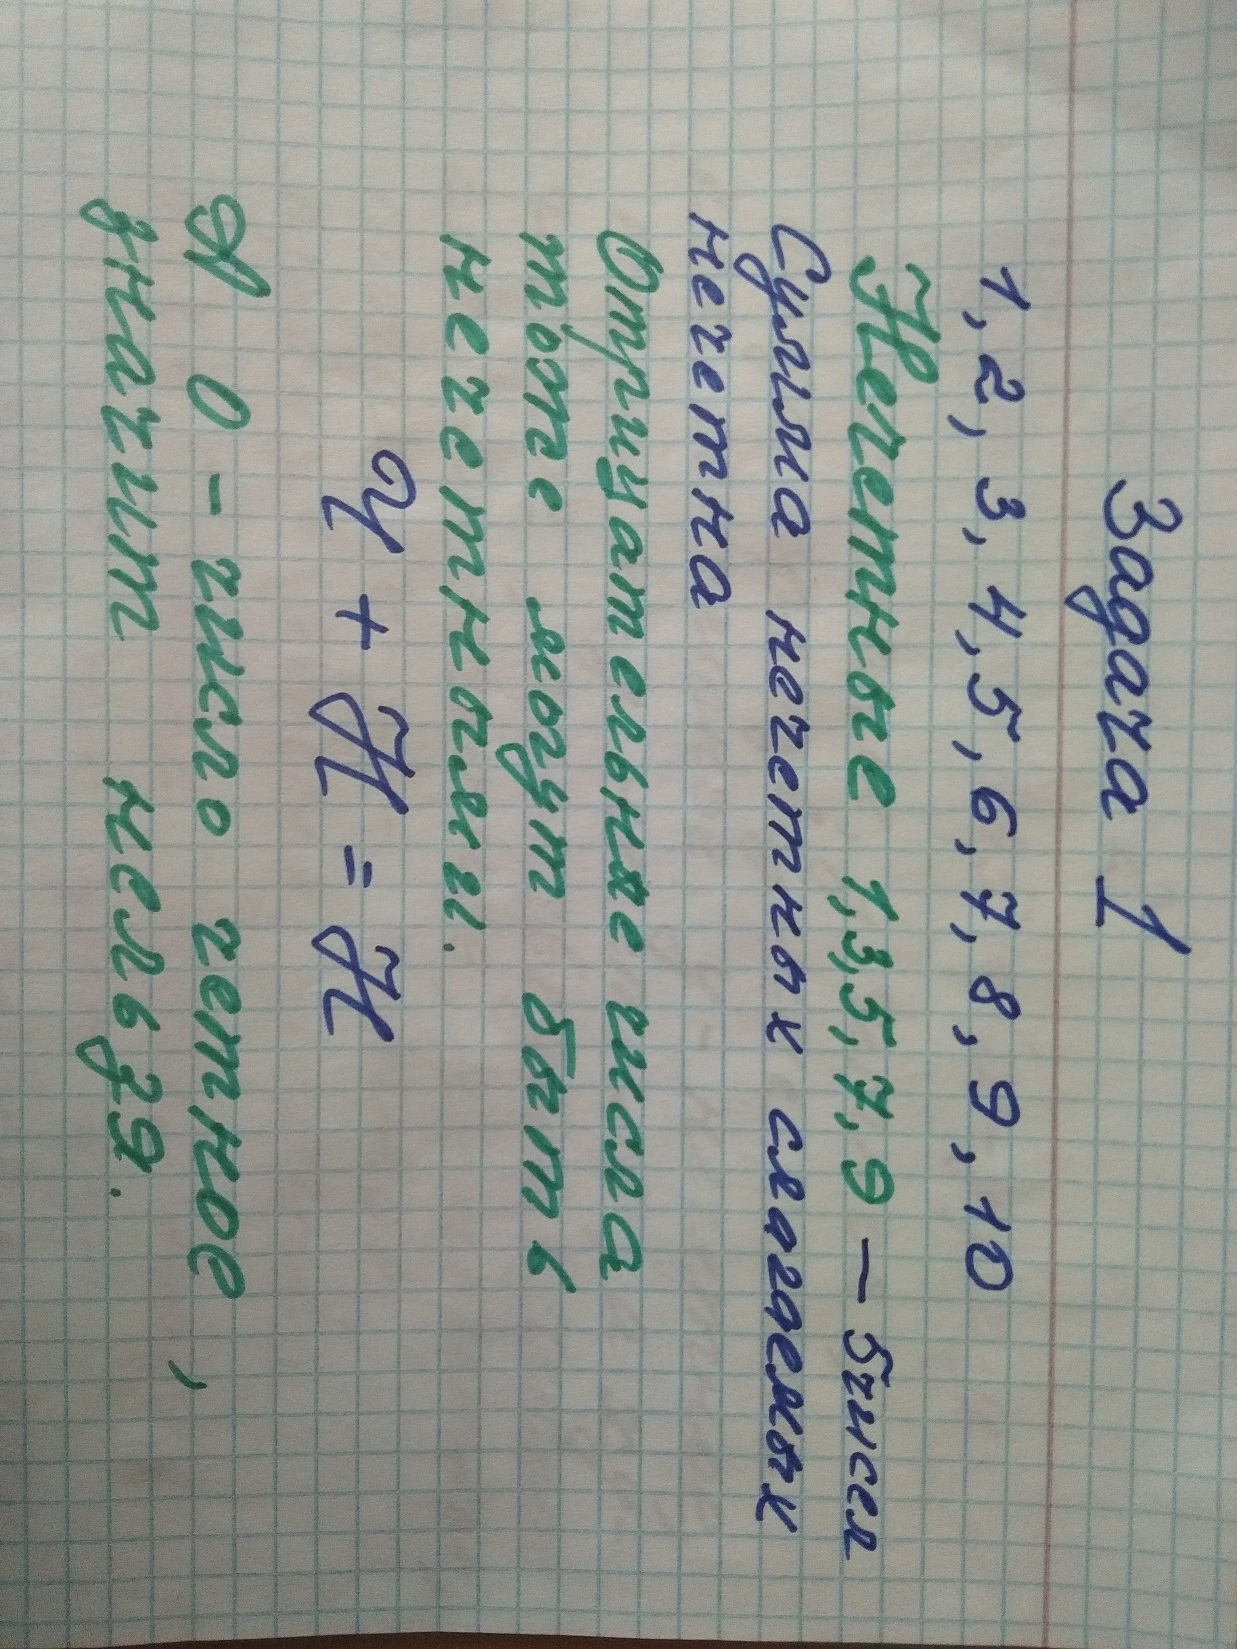 Задача 1
1, 2, 3, 4, 5, 6, 7, 8, 9, 10
Нечетные 1,3,5,7,9 – 5чисел
Сумма нечетных слагаемых
нечетна
Отрицательные числа
тоже могут быть
нечетными.
Ч + Н = Н
А 0 - число четное,
значит нельзя.